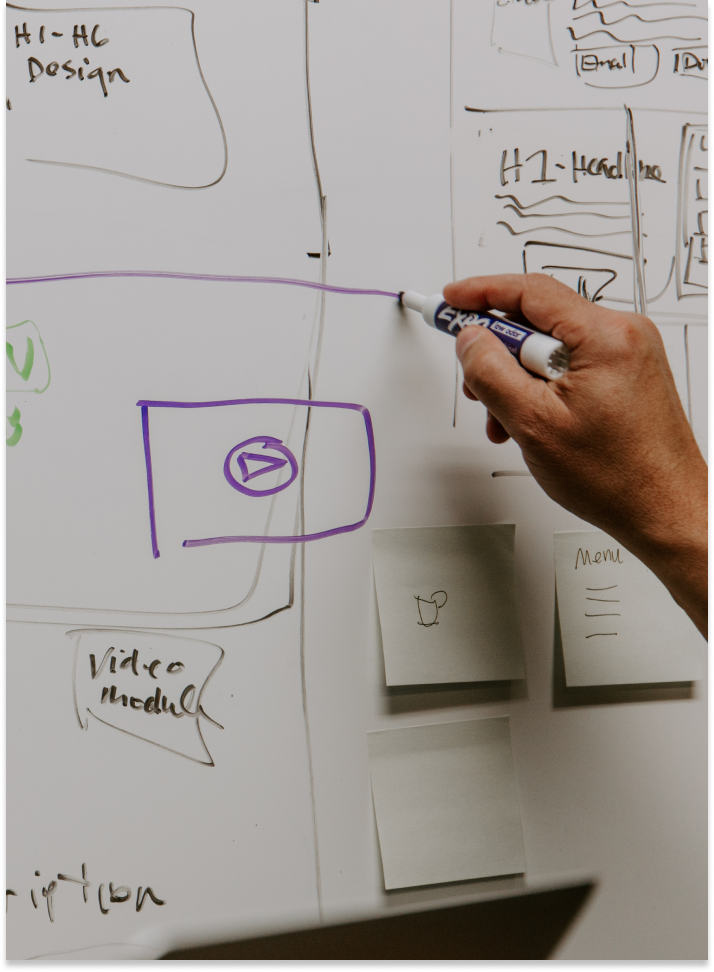 H1-H6
Design
Email
H1-Headline
EXPO
low odor
Menu
Video
Module